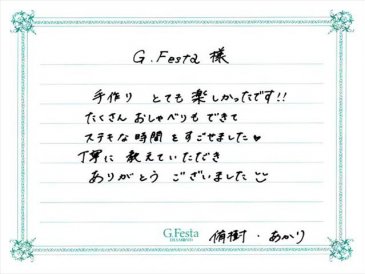 G.Festa 様
手作り とても楽しかったです!!
たくさん おしゃべりも できて
ステキな時間 をすごせました♥
丁寧に 教えていただき
ありがとう ございました
G.Festa
侑樹・あかり